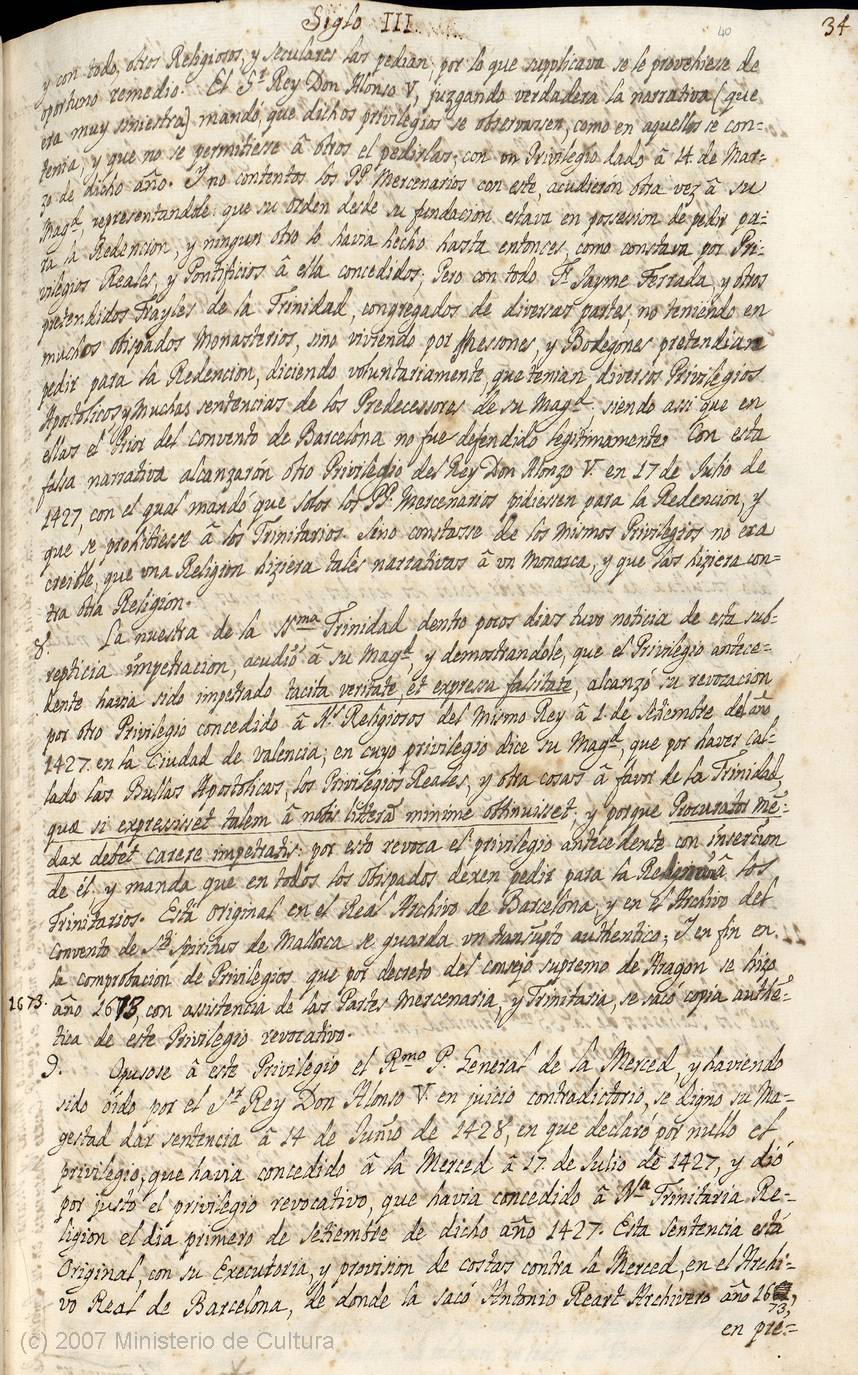 Siglo III
40
34
y con todo, otros Religiosos, y seculares las pedian, por lo que supplicava se le provehiese de
oportuno remedio. El Sr. Rey Don Alonso V, juzgando verdadera la narrativa (que
era muy siniestra) mandó, que dichos privilegios se observassen, como en aquellos se con=
tenia, y que no se permitiesse â otros el pedirlas; con vn Privilegio dado â 14 de Mar=
zo de dicho año. Y no contentos los PP. Mercenarios con este, acudieron otra vez â su
Magd., representandole: que su orden desde su fundacion estava en possession de pedir pa=
ra la Redencion, y ningun otro lo havia hecho hasta entonces, como constava por Pri=
vilegios Reales, y Pontificios â ella concedidos; Pero con todo Fr. Jayme Terrada, y otros
pretendidos Frayles de la Trinidad, congregados de diversas partes, no teniendo en
muchos obispados Monasterios, sino viviendo por Mesones, y Bodegones pretendian
pedir para la Redencion, diciendo voluntariamente, que tenian diversos Privilegios
Apostolicos y Muchas sentencias de los Predecessores de su Magd. siendo assi que en
ellas el Prior del convento de Barcelona no fue defendido legitimamente. Con esta
falsa narrativa alcanzarón otro Privilegio del Rey Don Alonzo V. en 17 de Julio de
1427, con el qual mandó que solos los PP. Mercenarios pidiessen para la Redencion, y
que se prohibiesse â los Trinitarios. Sino constasse de los mismos Privilegios no era
creible, que vna Religion hiziera tales narrativas â vn Monarca, y que las hiziera con=
tra otra Religion.
8. La nuestra de la SSma Trinidad dentro pocos dias tuvo noticia de esta sub=
repticia impetracion, acudió â su Magd., y demostrandole, que el Privilegio antece=
dente havia sido impetrado tacita veritate, et expressa falsitate, alcanzó su revocacion
por otro Privilegio concedido â Ns. Religiosos del mismo Rey â 1 de Setiembre del año
1427. en la Ciudad de Valencia; en cuyo privilegio dice su Magd., que por haver cal=
lado las Bullas Apostolicas, los Privilegios Reales, y otra cosas â favor de la Trinidad,
quæ si expressisset talem â nobis litterã minime obtinuisset, y porque Procurator mẽ=
dax debet carere impetratis: por esto revoca el privilegio antecedente con insercion
de él, y manda que en todos los obispados dexen pedir para la Redencion â los
Trinitarios. Esta original en el Real Archivo de Barcelona, y en el Archivo del
Convento de Sti. Spiritus de Mallorca se guarda vn transupto authentico; Y en fin en
la comprobacion de Privilegios que por decreto del consejo supremo de Aragon se hizo
1673. año 1673, con assistencia de las Partes Mercenaria, y Trinitaria, se sacó copia authẽ=
tica de este Privilegio revocativo.
9. Opusose â este Privilegio el Rmo P. General de la Merced, y haviendo
sido oido por el Sr. Rey Don Alonso V. en juicio contradictorio, se digno su Ma=
gestad dar sentencia â 14 de Junio de 1428, en que declaró por nullo el
privilegio, que havia concedido â la Merced â 17. de Julio de 1427, y dió
por justo el privilegio revocativo, que havia concedido â Na. Trinitaria Re=
ligion el dia primero de Setiembre de dicho año 1427. Esta sentencia está
Original, con su Executoria, y provision de costas contra la Merced, en el Archi=
vo Real de Barcelona, de donde la sacó Antonio Reart Archivero año 1673,
en pre=
(c) 2007 Ministerio de Cultura